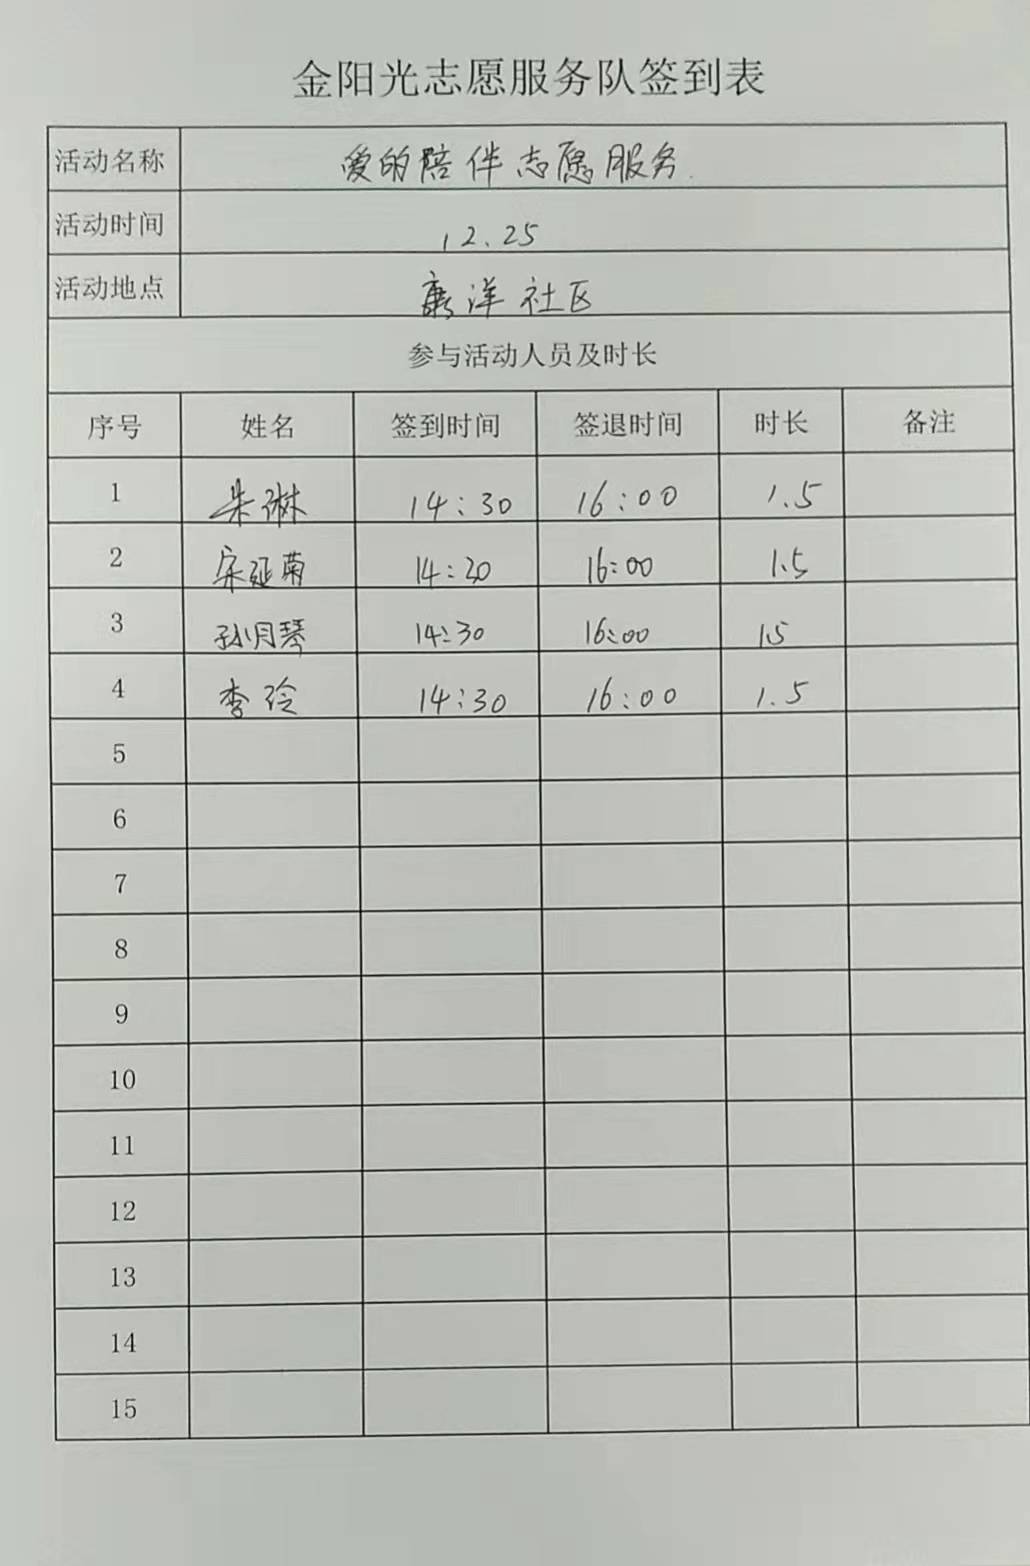 金阳光志愿服务队签到表
活动名称 爱的陪伴志愿服务
活动时间 12.25
活动地点 康洋社区
参与活动人员及时长
序号 姓名 签到时间 签退时间 时长 备注
1 朱琳 14:30 16:00 1.5
2 宋延菊 14:30 16:00 1.5
3 孙月琴 14:30 16:00 1.5
4 李玲 14:30 16:00 1.5
5
6
7
8
9
10
11
12
13
14
15